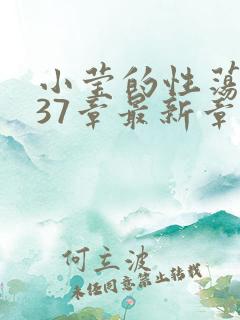 小莹的性荡
37章最新章
何立波
未经同意禁止转载